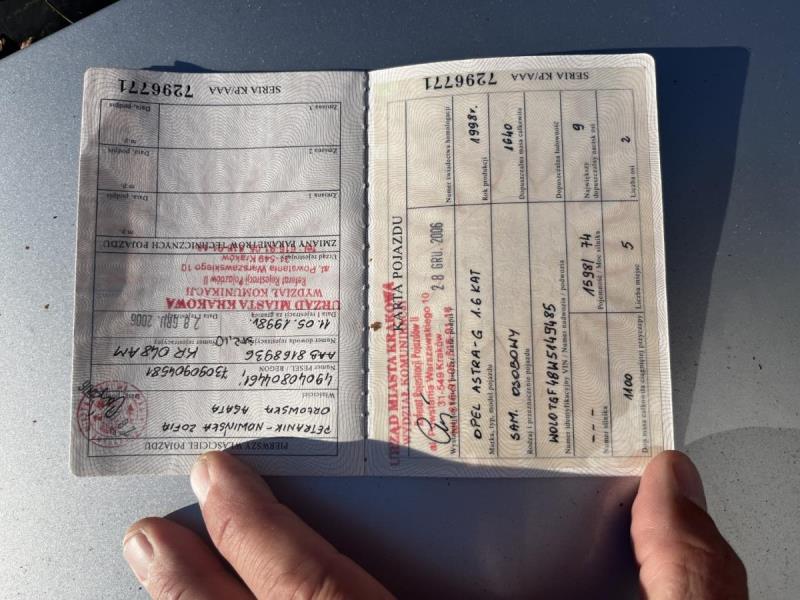 SERIA KP/AAA 7296771
PIERWSZY WŁAŚCICIEL POJAZDU
PETRANIK-NOWIŃSKA ZOFIA
ORŁOWSKA AGATA
Właściciel
49040804461, 73090904581
Numer PESEL, REGON
AAB8168936
KR 048AM
11.05.1998r.
28 GRU. 2006
Data I rejestracji za granicą
URZĄD MIASTA KRAKOWA
WYDZIAŁ KOMUNIKACJI
Referat Rejestracji Pojazdów II
al. Powstania Warszawskiego 10
31-549 Kraków
ZMIANY PARAMETRÓW TECHNICZNYCH POJAZDU
Zmiana 1
Data, podpis
m.p.
Zmiana 2
Data, podpis
m.p.
Zmiana 3
Data, podpis
m.p.
SERIA KP/AAA 7296771
KARTA POJAZDU
URZĄD MIASTA KRAKOWA
WYDZIAŁ KOMUNIKACJI
Referat Rejestracji Pojazdów II
al. Powstania Warszawskiego 10
31-549 Kraków
28 GRU. 2006
Numer świadectwa homologacji
OPEL ASTRA-G 1.6 KAT
Marka, typ, model pojazdu
1998r.
Rok produkcji
SAM. OSOBOWY
Rodzaj i przeznaczenie pojazdu
1640
Dopuszczalna masa całkowita
W0L0TGF48W5149485
Numer identyfikacyjny VIN / Numer nadwozia / podwozia
Dopuszczalna ładowność
---
Numer silnika
1598/ 74
Pojemność / Moc silnika
9
Największy dopuszczalny nacisk osi
1100
Dop masa całkowita ciągniętej przyczepy
5
Liczba miejsc
2
Liczba osi